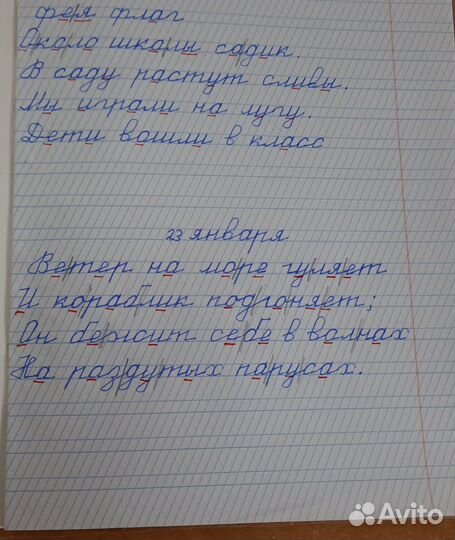 фея флаг
Около школы садик.
В саду растут сливы.
Мы играли на лугу.
Дети вошли в класс
23 января
Ветер на море гуляет
И кораблик подгоняет;
Он бежит себе в волнах
На раздутых парусах.
Avito